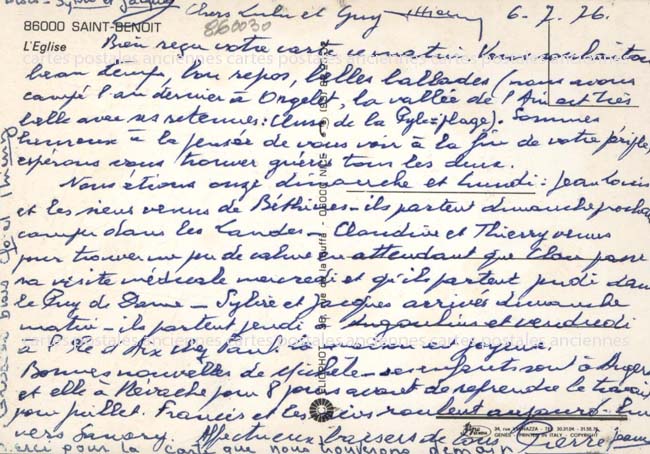 Chers Lulu et Guy Thierry 6.7.76.
86000 SAINT-BENOIT
860030
L'Eglise
Bien reçu votre carte ce matin. Vous souhaitons
beau temps, bon repos, belles ballades (nous avons
campé l'an dernier à Orgelet, la vallée de l'Ain est très
belle avec ses retenues: Cluse de la Pyle = plage). Sommes
heureux à la pensée de vous voir à la fin de votre périple,
espérons vous trouver guéris tous les deux.
Nous étions onze dimanche et lundi: Jean Louis
et les siens venus de Béthines - ils partent dimanche prochain
camper dans les Landes - Claudine et Thierry venus
pour trouver un peu de calme en attendant que Clau passe
sa visite médicale mercredi et qu'ils partent jeudi dans
le Puy de Dome - Sylvie et Jacques arrivés dimanche
matin - ils partent jeudi à Angoulins et vendredi
à l'île d'Aix
Bonnes nouvelles de Michèle - ses enfants sont à Angers
et elle à Névache pour 8 jours avant de reprendre le travail
pour juillet. Francis et les siens roulent aujourd'hui
vers Sanary. Affectueux baisers de tous Pierre
merci pour la carte que nous trouverons demain
cartes postales anciennes
24, rue - TEL. 30.31.04 - 31.50.76
GENES - PRINTED IN ITALY - COPYRIGHT
06000 NICE